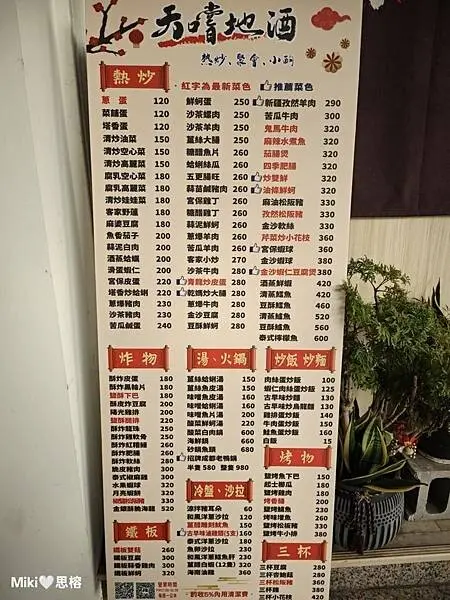 吞嚐地酒
熱炒、聚會、小酌
熱炒
紅字為最新菜色
推薦菜色
蔥蛋 120
菜脯蛋 120
塔香蛋 120
清炒油菜 150
清炒空心菜 150
清炒高麗菜 150
腐乳空心菜 180
腐乳高麗菜 180
清炒娃娃菜 180
客家野蓮 180
麻婆豆腐 180
魚香茄子 200
蒜泥白肉 200
酒蒸蛤蠣 200
滑蛋蝦仁 220
宮保皮蛋 220
塔香炒蛤蜊 220
蔥爆豬肉 230
沙茶豬肉 230
苦瓜鹹蛋 240
鮮蚵蛋 250
沙茶螺肉 250
沙茶羊肉 250
薑絲大腸 250
糖醋魚片 260
蛤蜊絲瓜 260
五更腸旺 260
蒜苗鹹豬肉 260
宮保雞丁 260
糖醋雞丁 260
蒜泥鮮蚵 260
蔥爆羊肉 260
苦瓜羊肉 260
客家小炒 270
沙茶牛肉 280
青龍炒皮蛋 280
乾煸炒大腸 280
蔥爆牛肉 280
金沙豆腐 280
豆酥鮮蚵 280
新疆孜然羊肉 290
苦瓜牛肉 300
鬼馬牛肉 320
麻辣水煮魚 320
茄腸煲 320
四季肥腸 320
炒雙鮮 320
油條鮮蚵 320
麻油松阪豬 330
孜然松阪豬 330
金沙軟絲 330
芹菜炒小花枝 360
宮保蝦球 360
金沙蝦球 380
金沙蝦仁豆腐煲 380
酒蒸鮮蝦 420
清蒸鱈魚 420
豆豉鱈魚 450
清蒸鱸魚 520
豆酥鱸魚 560
泰式檸檬魚 600
炸物
酥炸皮蛋 180
酥炸鳳輪片 180
鹽酥下巴 180
酥皮炸豆腐 200
陽光雞排 200
鹽酥腿排 220
酥炸龍珠 250
酥炸雞軟骨 250
酥炸杠糟鰻 260
酥炸肥腸 260
酥炸軟絲 280
脆皮豬肉 300
泰式椒麻雞 300
水果蝦球 320
月亮蝦餅 320
椒鹽松阪豬 330
金銀酥脆海鮮 520
湯、火鍋
薑絲蛤蜊湯 150
薑絲魚皮湯 150
味噌魚皮湯 160
味噌蛤蜊湯 160
味噌魚片湯 200
酸菜鮮蚵湯 200
酸菜白肉鍋 600
海鮮鍋 660
砂鍋魚頭 680
招牌成都老鴨鍋
半隻 580 整隻 980
炒飯 炒麵
肉絲蛋炒飯 100
蝦仁肉絲蛋炒飯 125
古早味炒麵 120
古早味炒烏龍麵 130
雞排蛋炒飯 140
牛肉蛋炒飯 150
鮭魚蛋炒飯 160
白飯 15
烤物
鹽烤魚下巴 150
起士椰瓜 150
鹽烤雞肉 180
烤香腸 200
鹽烤鯖魚 220
烤味噌魚 280
鹽烤松板豬 330
鹽烤牛小排 380
冷盤、沙拉
涼拌豬耳朵 60
和風洋蔥沙拉 120
薑醋雕刻魷魚 150
泰式洋蔥沙拉 180
魚卵沙拉 230
海南油雞 360
鐵板
鐵板雙菇 260
鐵板豆腐 280
鐵板蒜香雞肉 300
鐵板鮮蚵 320
三杯
三杯豆腐 280
三杯杏鮑菇 280
三杯松阪豬 360
三杯雞 390
三杯小卷 420
營業時間
酌收5%內用清潔費
Miki♡思榕